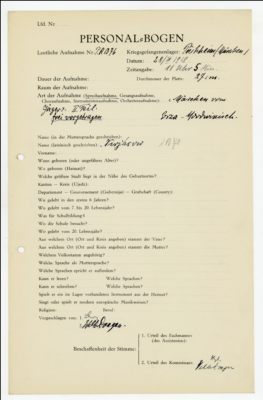 Lfd. Nr.
PERSONAL-BOGEN
Lautliche Aufnahme Nr.: PK 1076 Kriegsgefangenenlager:
Datum:
Dauer der Aufnahme: Zeitangabe: 11 Uhr 5 Min.
Durchmesser der Platte: 27 cm.
Raum der Aufnahme:
Art der Aufnahme (Sprechaufnahme, Gesangsaufnahme,
Choraufnahme, Instrumentenaufnahme, Orchesteraufnahme): Märchen vom
Jäger. I. Teil.
frei vorgetragen Erza-Mordwinisch.
Name (in der Muttersprache geschrieben):
Name (lateinisch geschrieben):
Vorname:
Wann geboren (oder ungefähres Alter)?
Wo geboren (Heimat)?
Welche größere Stadt liegt in der Nähe des Geburtsortes?
Kanton — Kreis (Ujedz):
Departement — Gouvernement (Gubernija) — Grafschaft (County):
Wo gelebt in den ersten 6 Jahren?
Wo gelebt vom 7. bis 20. Lebensjahr?
Was für Schulbildung?
Wo die Schule besucht?
Wo gelebt vom 20. Lebensjahr?
Aus welchem Ort (Ort und Kreis angeben) stammt der Vater?
Aus welchem Ort (Ort und Kreis angeben) stammt die Mutter?
Welchem Volksstamm angehörig?
Welche Sprache als Muttersprache?
Welche Sprachen spricht er außerdem?
Kann er lesen? Welche Sprachen?
Kann er schreiben? Welche Sprachen?
Spielt er ein im Lager vorhandenes Instrument aus der Heimat?
Singt oder spielt er modern europäische Musikweisen?
Religion: Beruf:
Vorgeschlagen von: 1.
2.
Beschaffenheit der Stimme:
1. Urteil des Fachmannes:
(des Assistenten):
2. Urteil des Kommissars: